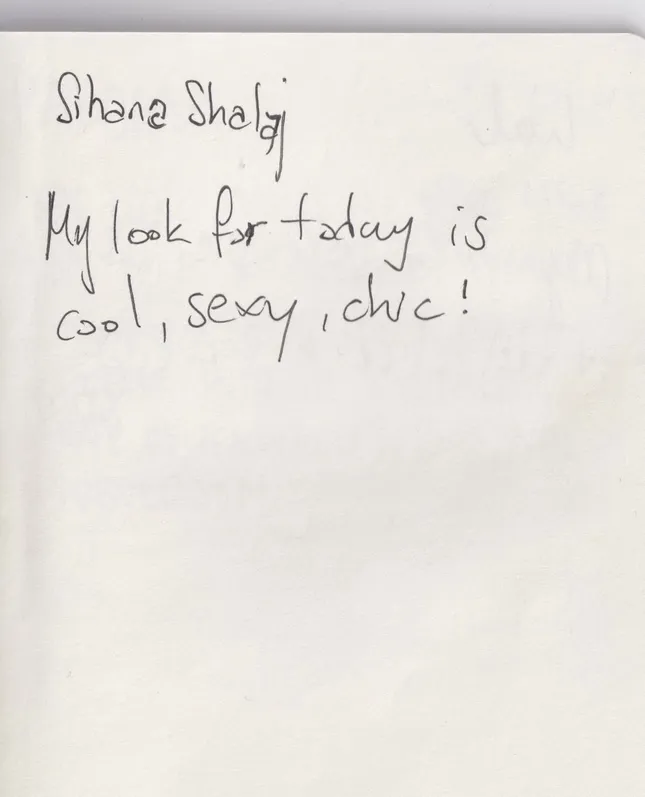 Sihana Shalaj
My look for today is
cool, sexy, chic!